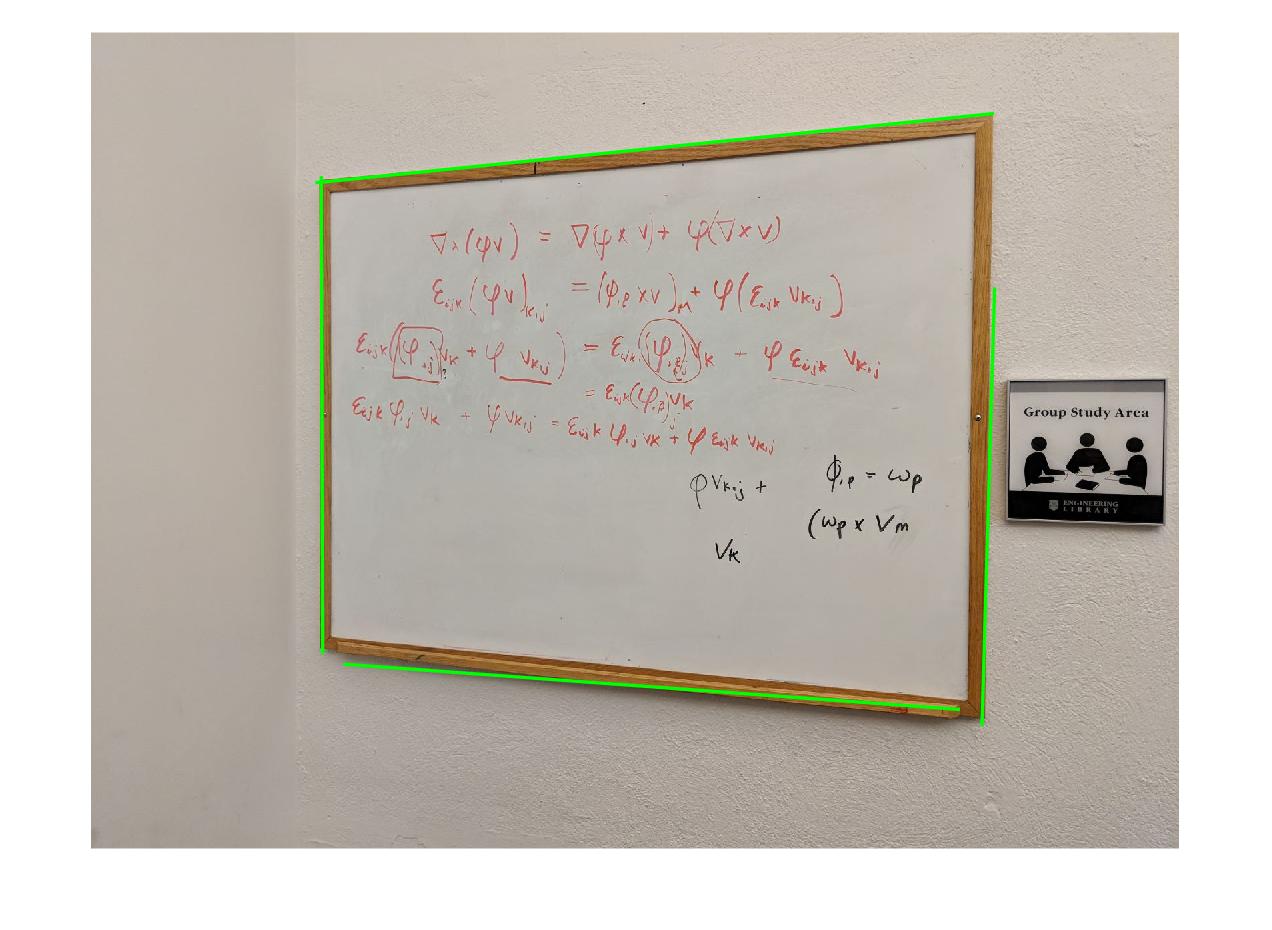 ∇×(φv) = ∇(φ × v) + φ(∇ × v)
εijk(φv)k,j = (φ,p × v)m + φ(εijk vk,j)
εijk((φ,j)vk + φ vk,j) = εijk(φ,p)j vk + φ εijk vk,j
= εijk(φ,p)j vk
εijk φ,j vk + φ vk,j = εijk φ,j vk + φ εijk vk,j
φ vk,j +
ϕ,p = ωp
(ωp × Vm
Vk
Group Study Area
ENGINEERING
LIBRARY